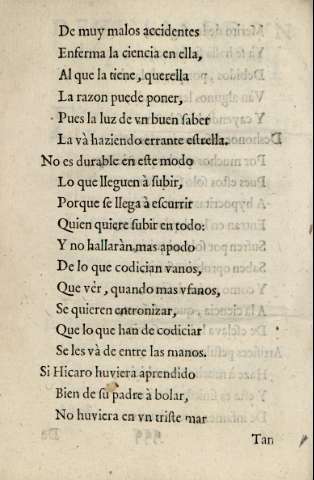 De muy malos accidentes
Enferma la ciencia en ella,
Al que la tiene, querella
La razon puede poner,
Pues la luz de vn buen saber
La và haziendo errante estrella.
No es durable en este modo
Lo que lleguen à subir,
Porque se llega à escurrir
Quien quiere subir en todo:
Y no hallaràn mas apodo
De lo que codician vanos,
Que vèr, quando mas vfanos,
Se quieren entronizar,
Que lo que han de codiciar
Se les và de entre las manos.
Si Hicaro huviera aprendido
Bien de su padre à bolar,
No huviera en vn triste mar
Tan